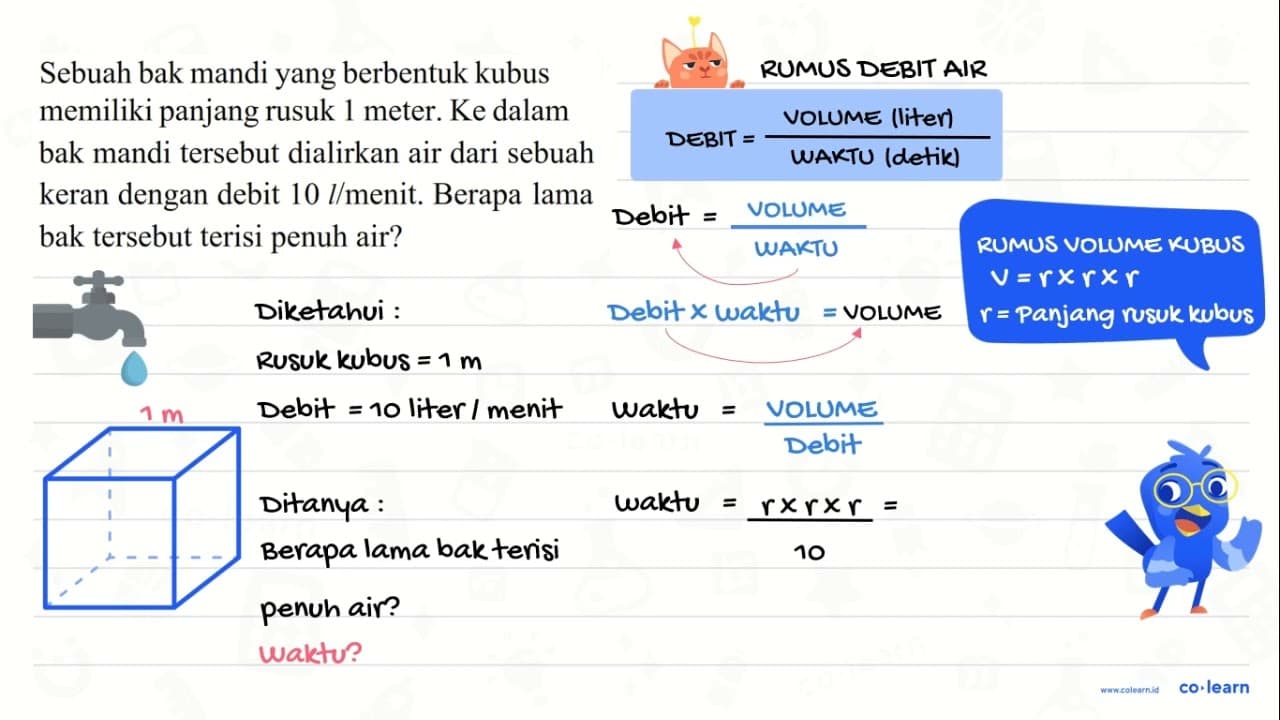 Sebuah bak mandi yang berbentuk kubus
memiliki panjang rusuk 1 meter. Ke dalam
bak mandi tersebut dialirkan air dari sebuah
keran dengan debit 10 l/menit. Berapa lama
bak tersebut terisi penuh air?
RUMUS DEBIT AIR
DEBIT = VOLUME (liter)
WAKTU (detik)
Debit = VOLUME
WAKTU
Debit x waktu = VOLUME
RUMUS VOLUME KUBUS
V = r x r x r
r = Panjang rusuk kubus
Diketahui :
Rusuk kubus = 1 m
Debit = 10 liter / menit
1 m
waktu = VOLUME
Debit
Ditanya :
Berapa lama bak terisi
penuh air?
waktu?
waktu = r x r x r =
10
www.colearn.id
co•learn